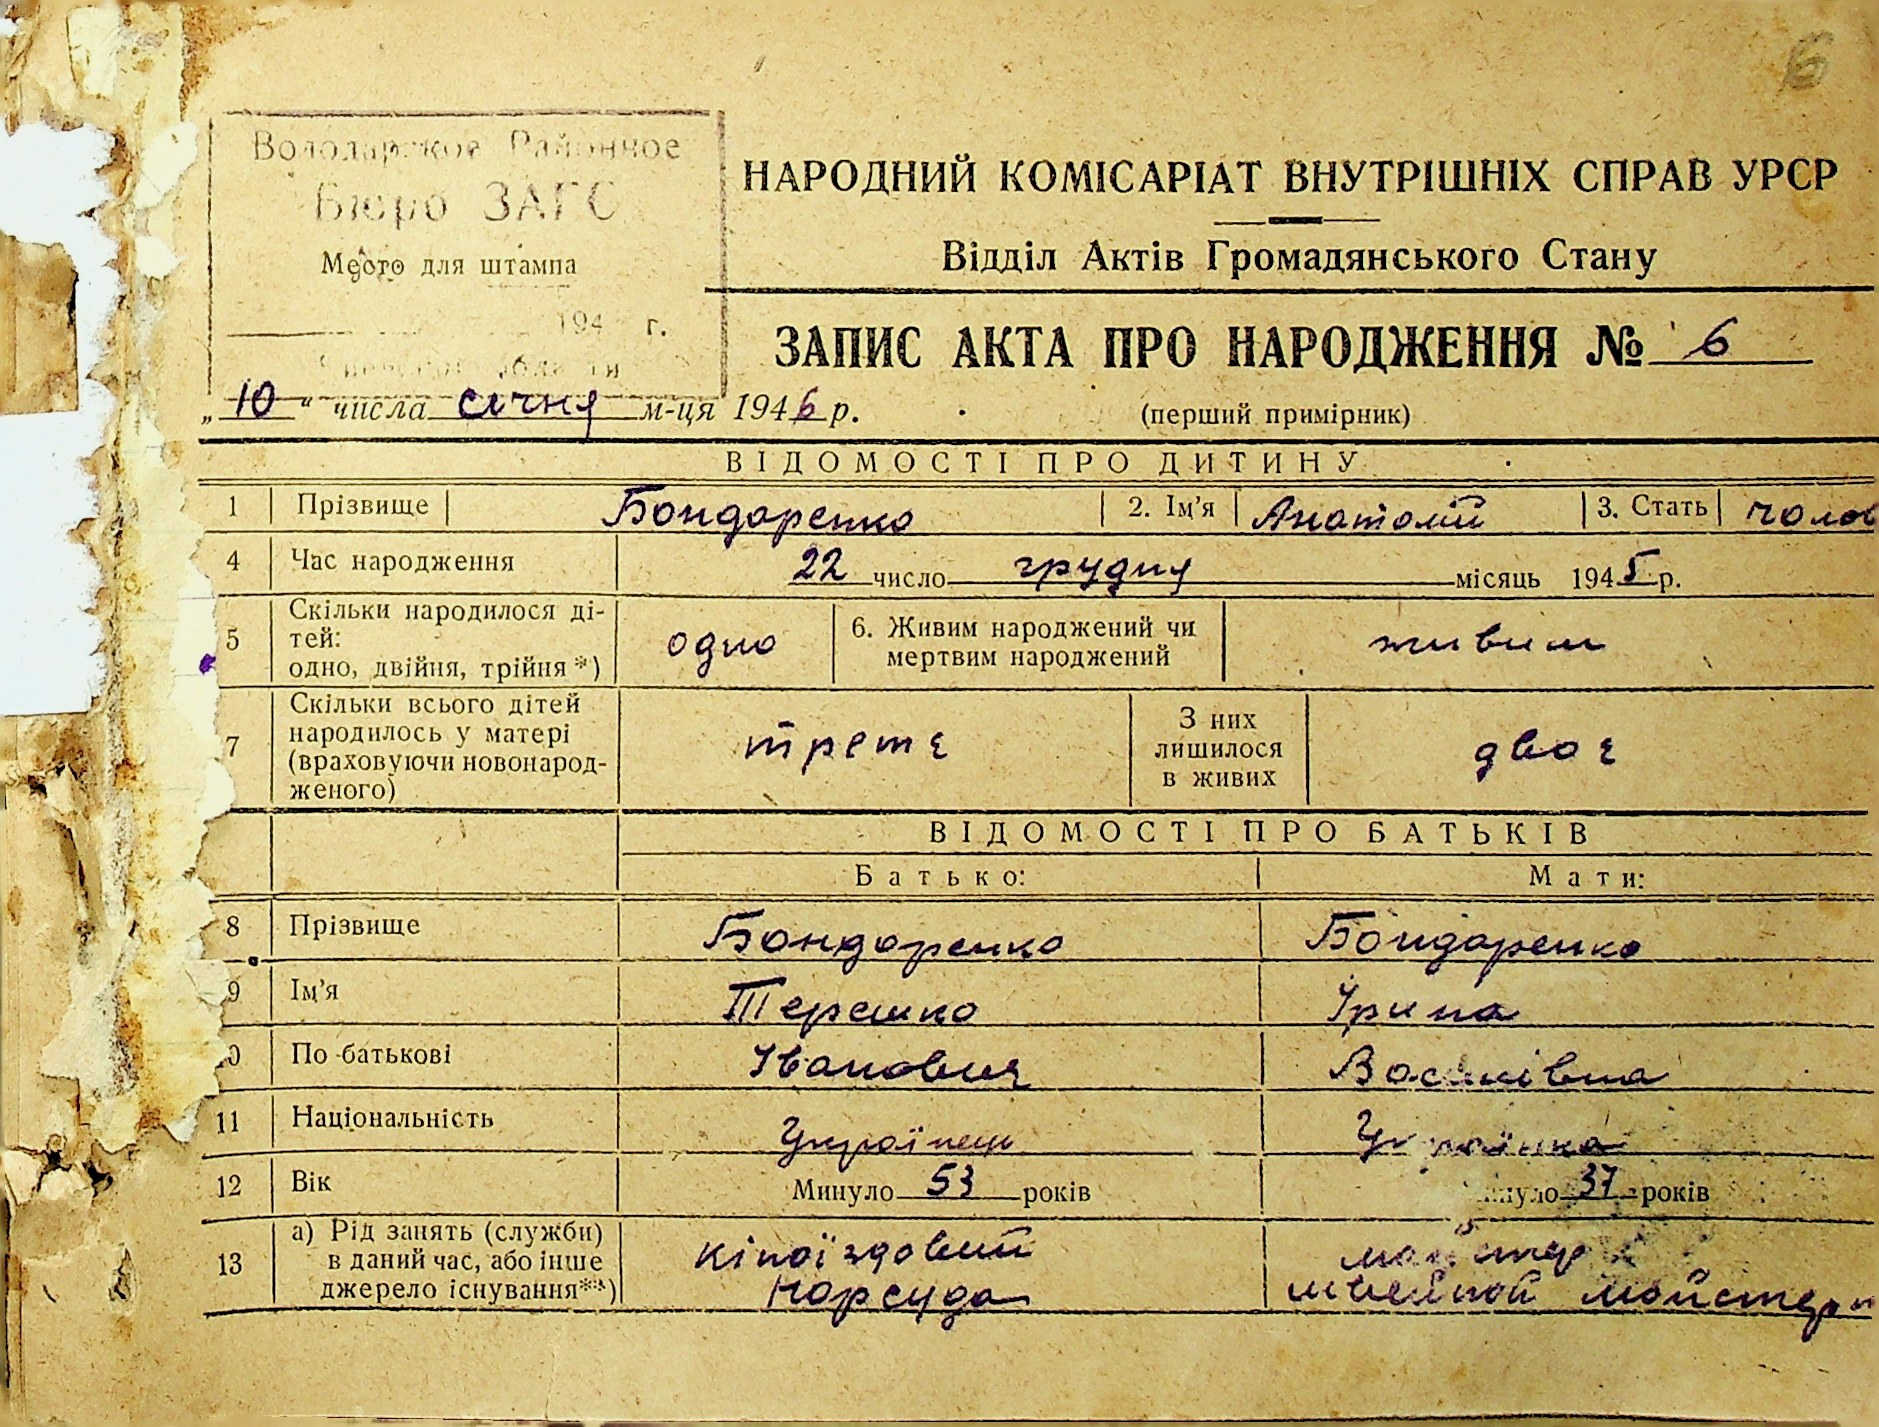 6
Володарское Районное
Бюро ЗАГС
Место для штампа
194 г.
области
НАРОДНИЙ КОМІСАРІАТ ВНУТРІШНІХ СПРАВ УРСР
Відділ Актів Громадянського Стану
ЗАПИС АКТА ПРО НАРОДЖЕННЯ № 6
„10" числа січня м-ця 1946 р.
(перший примірник)
ВІДОМОСТІ ПРО ДИТИНУ
1 Прізвище Бондаренко 2. Ім'я Анатолій 3. Стать чолов
4 Час народження 22 число грудня місяць 1945 р.
5 Скільки народилося ді-
тей:
одно, двійня, трійня *) одно 6. Живим народжений чи
мертвим народжений живим
7 Скільки всього дітей
народилось у матері
(враховуючи новонарод-
женого) третє З них
лишилося
в живих двоє
ВІДОМОСТІ ПРО БАТЬКІВ
Батько: Мати:
8 Прізвище Бондаренко Бондаренко
9 Ім'я Терешко Ірина
0 По-батькові Іванович Василівна
11 Національність Українець Українка
12 Вік Минуло 53 років нуло 37 років
13 а) Рід занять (служби)
в даний час, або інше
джерело існування**) кіпоїздовий
Нарсуда майстер
швейной майстерн